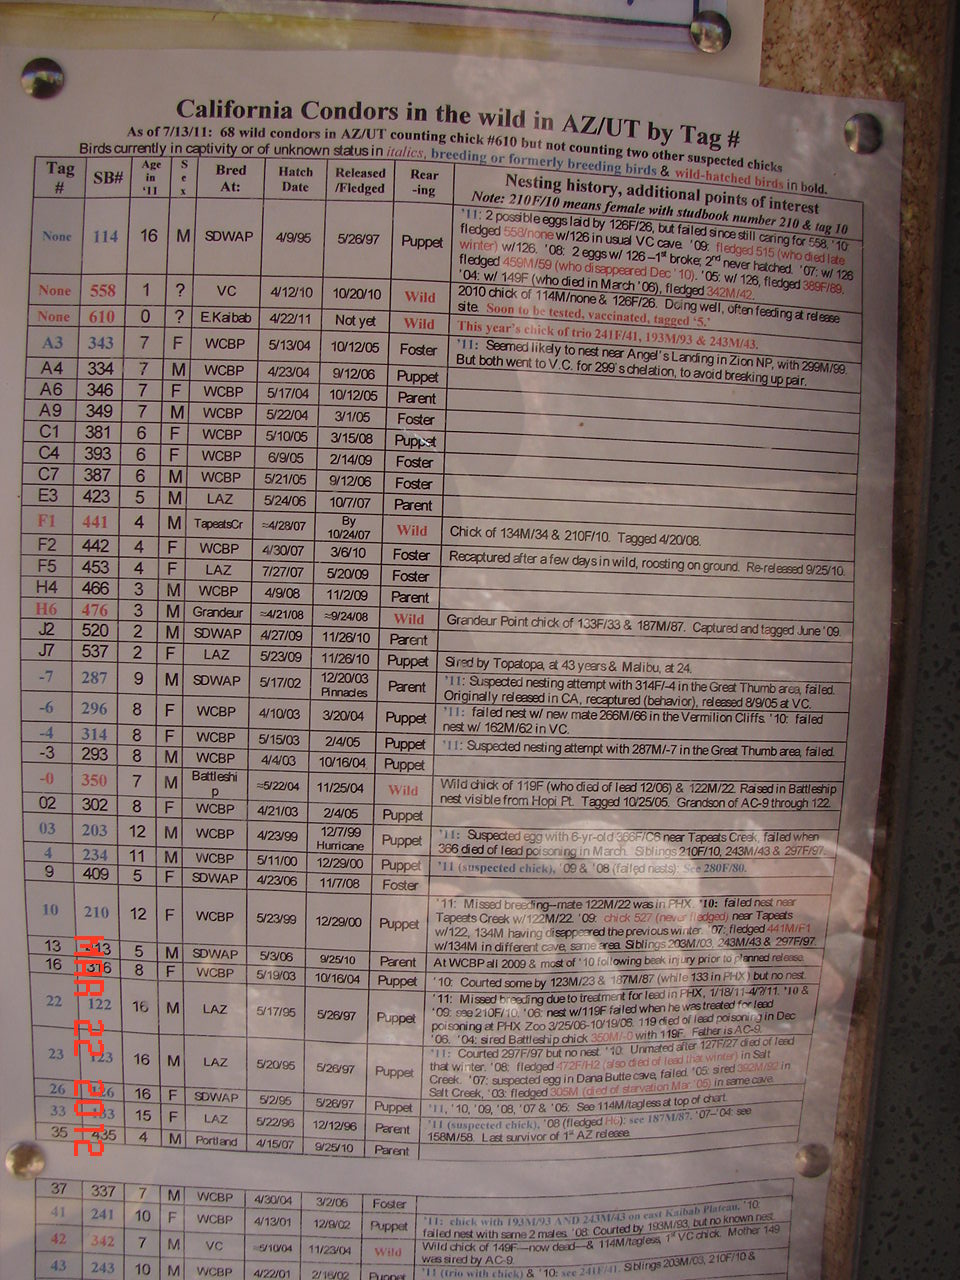 California Condors in the wild in AZ/UT by Tag #
As of 7/13/11: 68 wild condors in AZ/UT counting chick #610 but not counting two other suspected chicks
Birds currently in captivity or of unknown status in italics, breeding or formerly breeding birds & wild-hatched birds in bold.
Tag # SB# Age in '11 Sex Bred At: Hatch Date Released /Fledged Rear-ing Nesting history, additional points of interest
Note: 210F/10 means female with studbook number 210 & tag 10
None 114 16 M SDWAP 4/9/95 5/26/97 Puppet '11: 2 possible eggs laid by 126F/26, but failed since still caring for 558. '10:
fledged 558/none w/126 in usual VC cave. '09: fledged 515 (who died late
winter) w/126. '08: 2 eggs w/ 126 –1st broke; 2nd never hatched. '07: w/ 126
fledged 459M/59 (who disappeared Dec '10). '05: w/ 126, fledged 389F/89.
'04: w/ 149F (who died in March '06), fledged 342M/42.
None 558 1 ? VC 4/12/10 10/20/10 Wild 2010 chick of 114M/none & 126F/26. Doing well, often feeding at release
site. Soon to be tested, vaccinated, tagged '5.'
None 610 0 ? E.Kaibab 4/22/11 Not yet Wild This year's chick of trio 241F/41, 193M/93 & 243M/43.
A3 343 7 F WCBP 5/13/04 10/12/05 Foster '11: Seemed likely to nest near Angel's Landing in Zion NP, with 299M/99.
But both went to V.C. for 299's chelation, to avoid breaking up pair.
A4 334 7 M WCBP 4/23/04 9/12/06 Puppet
A6 346 7 F WCBP 5/17/04 10/12/05 Parent
A9 349 7 M WCBP 5/22/04 3/1/05 Foster
C1 381 6 F WCBP 5/10/05 3/15/08 Puppet
C4 393 6 F WCBP 6/9/05 2/14/09 Foster
C7 387 6 M WCBP 5/21/05 9/12/06 Foster
E3 423 5 M LAZ 5/24/06 10/7/07 Parent
F1 441 4 M TapeatsCr ≈4/28/07 By 10/24/07 Wild Chick of 134M/34 & 210F/10. Tagged 4/20/08.
F2 442 4 F WCBP 4/30/07 3/6/10 Foster Recaptured after a few days in wild, roosting on ground. Re-released 9/25/10.
F5 453 4 F LAZ 7/27/07 5/20/09 Foster
H4 466 3 M WCBP 4/9/08 11/2/09 Parent
H6 476 3 M Grandeur ≈4/21/08 ≈9/24/08 Wild Grandeur Point chick of 133F/33 & 187M/87. Captured and tagged June '09.
J2 520 2 M SDWAP 4/27/09 11/26/10 Parent
J7 537 2 F LAZ 5/23/09 11/26/10 Puppet Sired by Topatopa, at 43 years & Malibu, at 24.
-7 287 9 M SDWAP 5/17/02 12/20/03 Pinnacles Parent '11: Suspected nesting attempt with 314F/-4 in the Great Thumb area, failed.
Originally released in CA, recaptured (behavior), released 8/9/05 at VC.
-6 296 8 F WCBP 4/10/03 3/20/04 Puppet '11: failed nest w/ new mate 266M/66 in the Vermilion Cliffs. '10: failed
nest w/ 162M/62 in VC.
-4 314 8 F WCBP 5/15/03 2/4/05 Puppet '11: Suspected nesting attempt with 287M/-7 in the Great Thumb area, failed.
-3 293 8 M WCBP 4/4/03 10/16/04 Puppet
-0 350 7 M Battleship ≈5/22/04 11/25/04 Wild Wild chick of 119F (who died of lead 12/06) & 122M/22. Raised in Battleship
nest visible from Hopi Pt. Tagged 10/25/05. Grandson of AC-9 through 122.
02 302 8 F WCBP 4/21/03 2/4/05 Puppet
03 203 12 M WCBP 4/23/99 12/7/99 Hurricane Puppet '11: Suspected egg with 6-yr-old 366F/C6 near Tapeats Creek, failed when
366 died of lead poisoning in March. Siblings 210F/10, 243M/43 & 297F/97.
4 234 11 M WCBP 5/11/00 12/29/00 Puppet '11 (suspected chick), '09 & '08 (failed nests): See 280F/80.
9 409 5 F SDWAP 4/23/06 11/7/08 Foster
10 210 12 F WCBP 5/23/99 12/29/00 Puppet '11: Missed breeding–mate 122M/22 was in PHX. '10: failed nest near
Tapeats Creek w/122M/22. '09: chick 527 (never fledged) near Tapeats
w/122, 134M having disappeared the previous winter. '07: fledged 441M/F1
w/134M in different cave, same area. Siblings 203M/03, 243M/43 & 297F/97.
13 413 5 M SDWAP 5/3/06 9/25/10 Parent At WCBP all 2009 & most of '10 following beak injury prior to planned release.
16 316 8 F WCBP 5/19/03 10/16/04 Puppet '10: Courted some by 123M/23 & 187M/87 (while 133 in PHX) but no nest.
22 122 16 M LAZ 5/17/95 5/26/97 Puppet '11: Missed breeding due to treatment for lead in PHX, 1/18/11-4/?/11. '10 &
'09: see 210F/10. '06: nest w/119F failed when he was treated for lead
poisoning at PHX Zoo 3/25/06-10/19/06. 119 died of lead poisoning in Dec
'06. '04: sired Battleship chick 350M/-0 with 119F. Father is AC-9.
23 123 16 M LAZ 5/20/95 5/26/97 Puppet '11: Courted 297F/97 but no nest. '10: Unmated after 127F/27 died of lead
that winter. '08: fledged 472F/H2 (also died of lead that winter) in Salt
Creek. '07: suspected egg in Dana Butte cave, failed. '05: sired 392M/92 in
Salt Creek. '03: fledged 305M (died of starvation Mar '05) in same cave.
26 126 16 F SDWAP 5/2/95 5/26/97 Puppet '11, '10, '09, '08, '07 & '05: See 114M/tagless at top of chart.
33 133 15 F LAZ 5/22/96 12/12/96 Parent '11 (suspected chick), '08 (fledged H6): see 187M/87. '07–'04: see
158M/58. Last survivor of 1st AZ release.
35 435 4 M Portland 4/15/07 9/25/10 Parent
37 337 7 M WCBP 4/30/04 3/2/06 Foster
41 241 10 F WCBP 4/13/01 12/9/02 Puppet '11: chick with 193M/93 AND 243M/43 on east Kaibab Plateau. '10:
failed nest with same 2 males. '08: Courted by 193M/93, but no known nest.
42 342 7 M VC ≈5/10/04 11/23/04 Wild Wild chick of 149F—now dead—& 114M/tagless, 1st VC chick. Mother 149
was sired by AC-9.
43 243 10 M WCBP 4/22/01 2/16/02 Puppet '11 (trio with chick) & '10: see 241F/41. Siblings 203M/03, 210F/10 &
MAR 22 2012